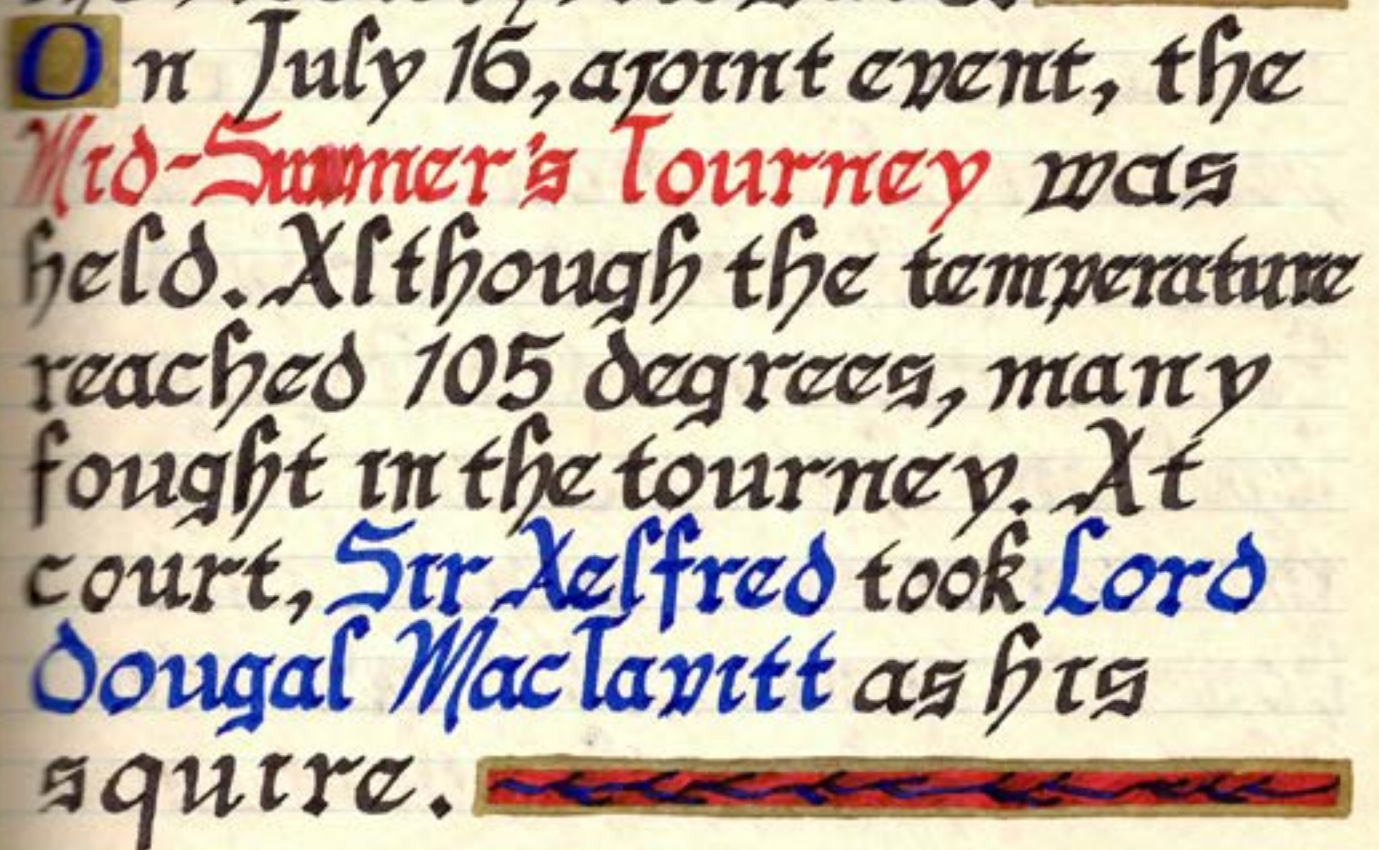 On July 16, a joint event, the
Mid-Summer's Tourney was
held. Although the temperature
reached 105 degrees, many
fought in the tourney. At
court, Sir Aelfred took Lord
Dougal MacTavitt as his
squire.